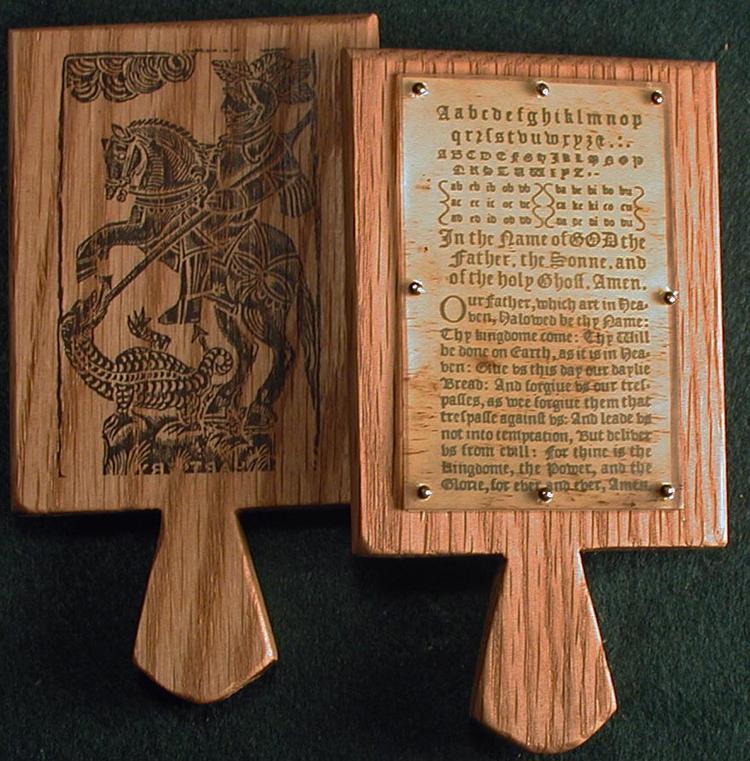 Aabcdefghiklmnop
qrꝛſstvuwxyzꝫ.:.
ABCDEFGHIKLMNOP
QRSTUWXYZ.
ab eb ib ob vb ba be bi bo bu
ac ec ic oc vc ca ke ki co cu
ad ed id od vd da de di do du
In the Name of GOD the
Father, the Sonne, and
of the holy Ghoſt, Amen.
Our Father, which art in Hea-
ven, Halowed be thy Name:
Thy kingdome come: Thy Will
be done on Earth, as it is in Hea-
ven: Giue vs this day our daylie
Bread: And forgiue vs our treſ-
paſſes, as wee forgiue them that
treſpaſſe againſt vs: And leade vs
not into temptation, But deliver
vs from evill: For thine is the
kingdome, the Power, and the
Glorie, for ever and ever, Amen.